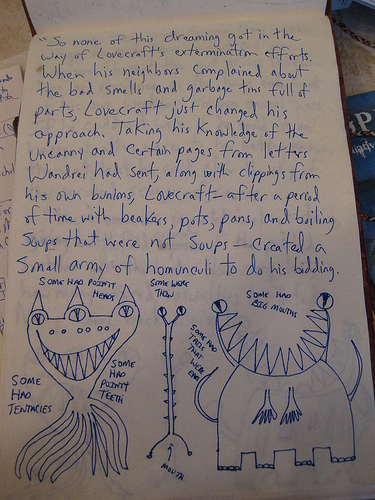 "So none of this dreaming got in the
way of Lovecraft's extermination efforts.
When his neighbors complained about
the bad smells and garbage tins full of
parts, Lovecraft just changed his
approach. Taking his knowledge of the
uncanny and certain pages from letters
Wandrei had sent, along with clippings from
his own bunions, Lovecraft — after a period
of time with beakers, pots, pans, and boiling
soups that were not soups — created a
small army of homunculi to do his bidding.
SOME HAD POINTY
HEADS
SOME WERE
THIN
SOME HAD
BIG MOUTHS
SOME HAD
TAILS
THAT
WERE
SOME
HAD
POINTY
TEETH
SOME
HAD
TENTACLES
MOUTH